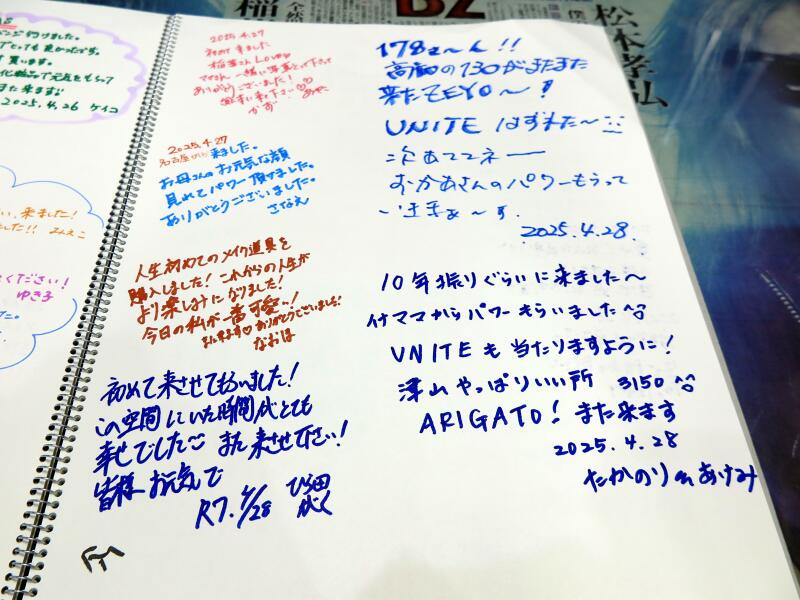 B'z
稲
松本孝弘
買います。
また来ます
2025.4.26 ケイコ
来ました!
みえこ
ください!
ゆき子
2025.4.27
初めて来ました
稲葉さん Love♡
ありがとうございました!
2025.4.27
名古屋から来ました。
お母さんのお元気な顔
見れてパワー頂けました。
ありがとうございました。
さなえ
人生初めてのメイク道具を
購入しました! これからの人生が
より楽しみになりました!
今日の私が一番可愛い!
また来ます♡ ありがとうございました!
なおほ
初めて来させてもらいました!
この空間にいた時間がとても
幸せでした また来させて下さい!
皆様お元気で
R7. 4/28
178さ〜ん!!
高知の130がまたまた
来たZEYO〜!
UNITE はずれた〜
おかあさんのパワーもらって
いきまぁ〜す
2025.4.28
10年振りぐらいに来ました〜
イナママからパワーもらいました^^
UNITEも当たりますように!
津山やっぱりいい所 3150
ARIGATO! また来ます
2025.4.28
たかのり あけみ